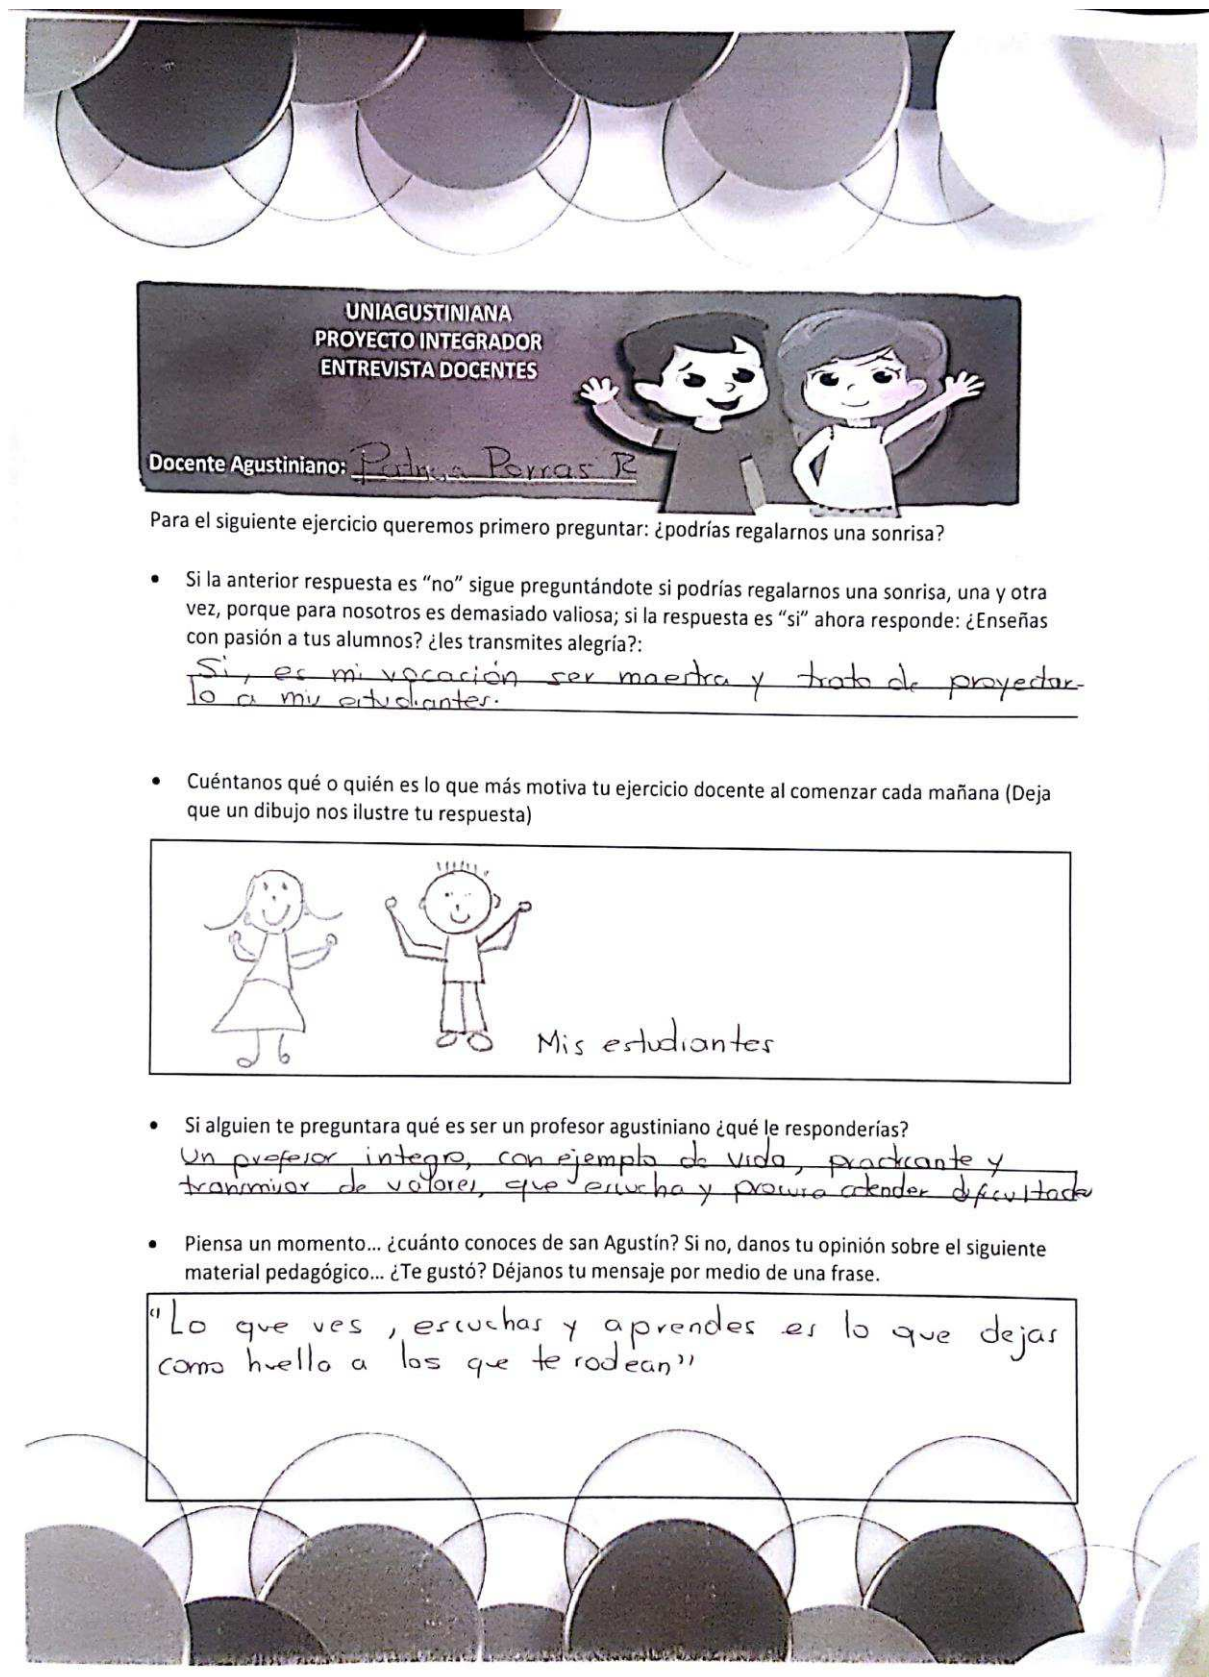 UNIAGUSTINIANA
PROYECTO INTEGRADOR
ENTREVISTA DOCENTES
Docente Agustiniano: Patricia Porras R
Para el siguiente ejercicio queremos primero preguntar: ¿podrías regalarnos una sonrisa?
• Si la anterior respuesta es “no” sigue preguntándote si podrías regalarnos una sonrisa, una y otra
vez, porque para nosotros es demasiado valiosa; si la respuesta es “si” ahora responde: ¿Enseñas
con pasión a tus alumnos? ¿les transmites alegría?:
Si, es mi vocación ser maestra y trato de proyectar-
lo a mis estudiantes.
• Cuéntanos qué o quién es lo que más motiva tu ejercicio docente al comenzar cada mañana (Deja
que un dibujo nos ilustre tu respuesta)
Mis estudiantes
• Si alguien te preguntara qué es ser un profesor agustiniano ¿qué le responderías?
Un profesor integro, con ejemplo de vida, practicante y
transmisor de valores, que escucha y procura atender dificultades
• Piensa un momento... ¿cuánto conoces de san Agustín? Si no, danos tu opinión sobre el siguiente
material pedagógico... ¿Te gustó? Déjanos tu mensaje por medio de una frase.
"Lo que ves, escuchas y aprendes es lo que dejas
como huella a los que te rodean"